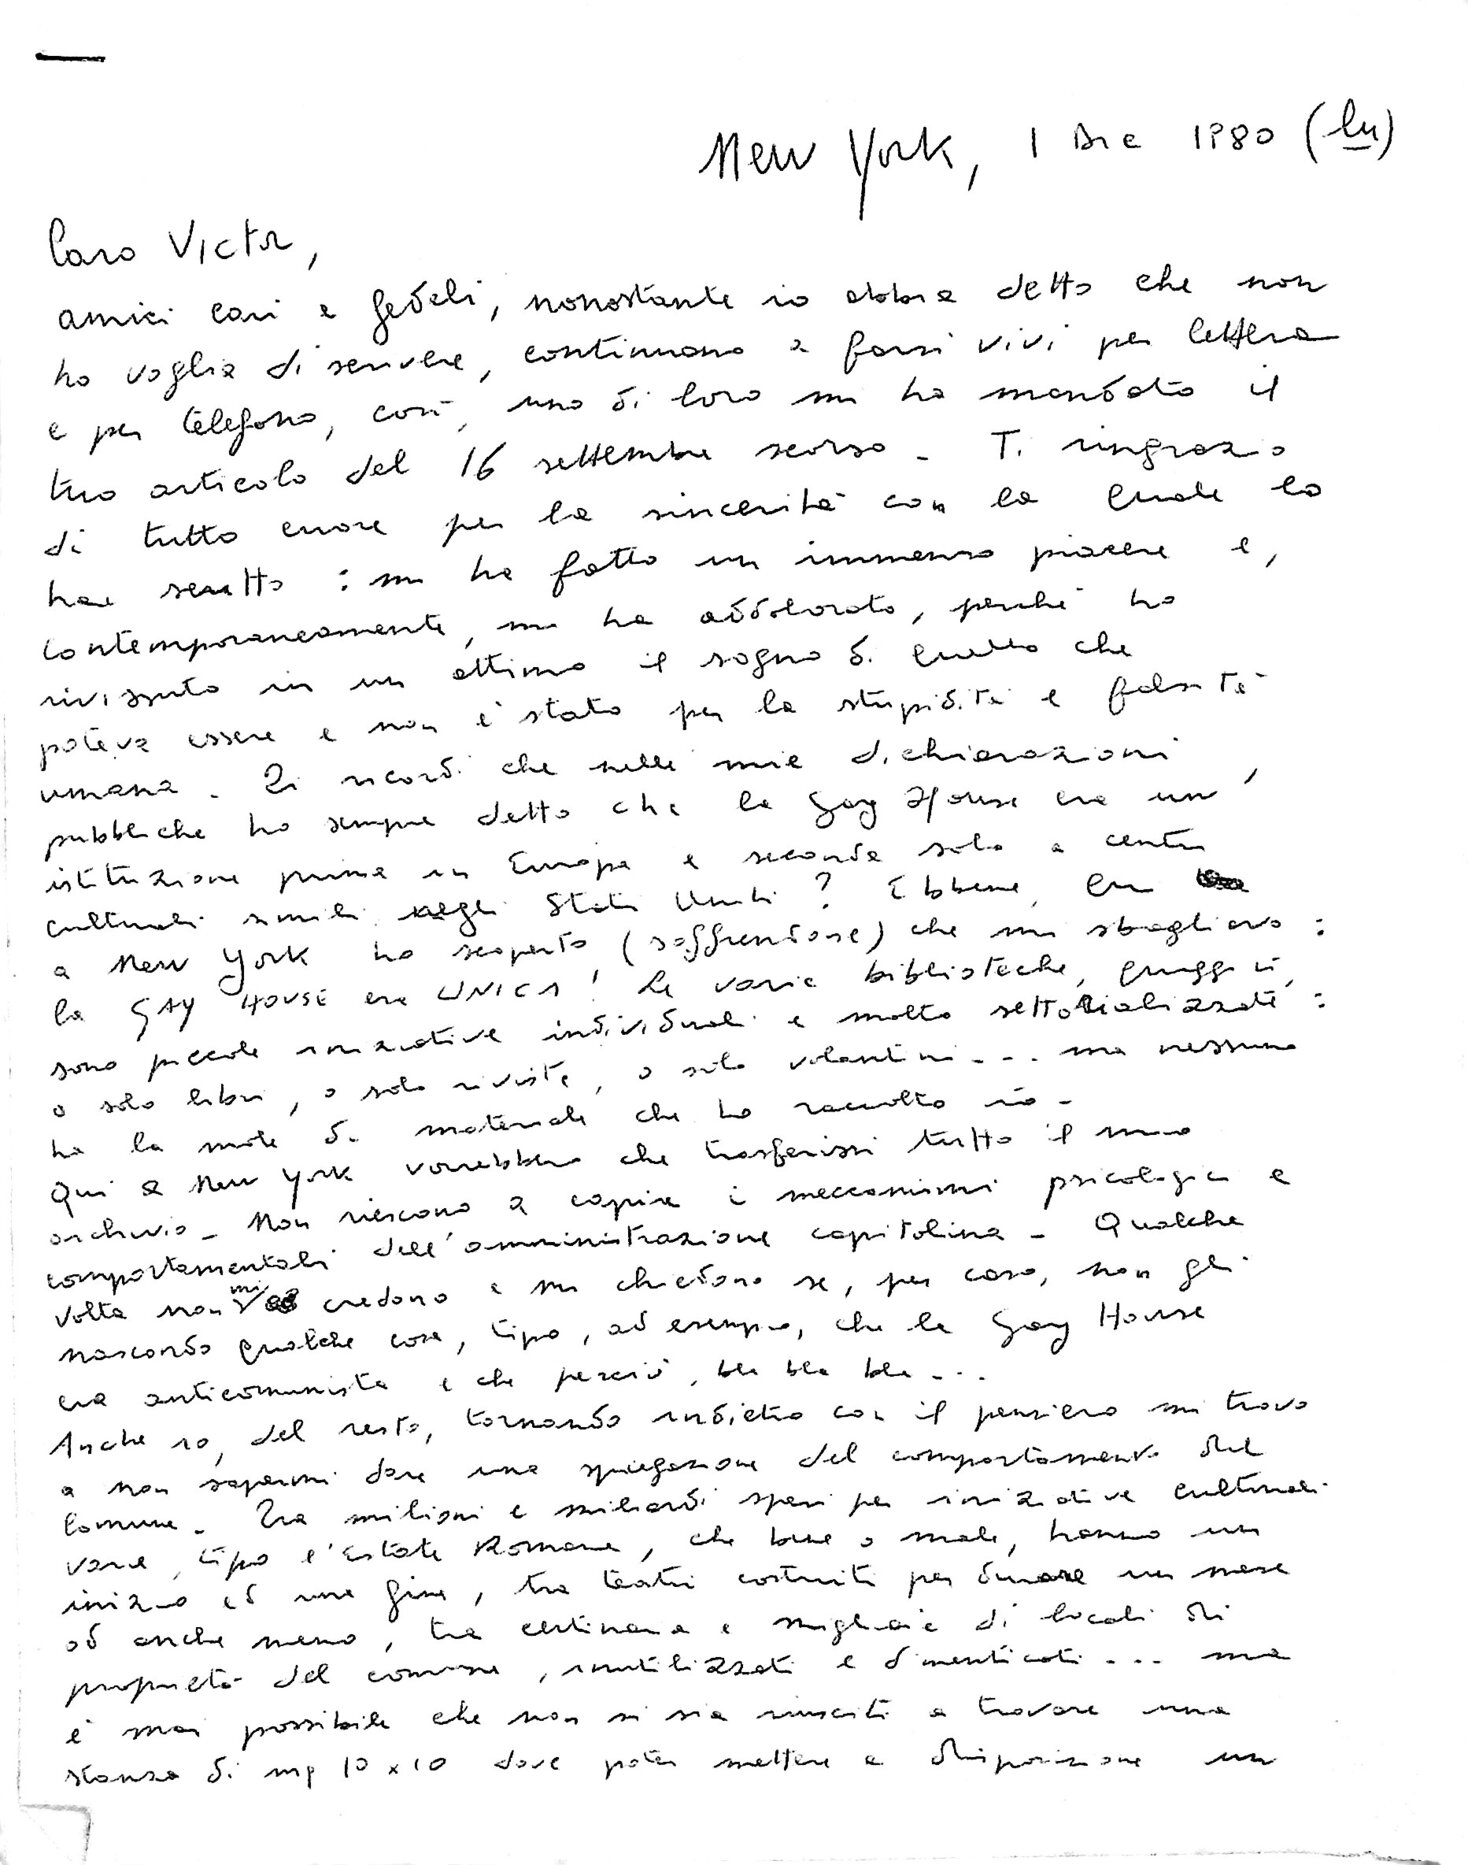 New York, 1 Dic 1980 (lu)
Caro Victor,
amici cari e fedeli, nonostante io abbia detto che non
ho voglia di scrivere, continuano a farsi vivi per lettera
e per telefono, così, uno di loro mi ha mandato il
tuo articolo del 16 settembre scorso. Ti ringrazio
di tutto cuore per la sincerità con la quale lo
hai scritto: mi ha fatto un immenso piacere e,
contemporaneamente, mi ha addolorato, perché ho
rivissuto in un attimo il sogno di quello che
poteva essere e non è stato per la stupidità e falsità
umana. Ti ricordi che nelle mie dichiarazioni
pubbliche ho sempre detto che la Gay House era un'
istituzione prima in Europa e seconda solo a centri
culturali simili negli Stati Uniti? Ebbene, qui
a New York ho scoperto (soffrendone) che mi sbagliavo:
la GAY HOUSE era UNICA! Le varie biblioteche, quaggiù,
sono piccole iniziative individuali e molto settorializzate:
o solo libri, o solo riviste, o solo volantini... ma nessuno
ha la mole di materiale che ho raccolto io.
Qui a New York vorrebbero che trasferissi tutto il mio
archivio. Non riescono a capire i meccanismi psicologici e
comportamentali dell'amministrazione capitolina. Qualche
volta non mi credono e mi chiedono se, per caso, non gli
nascondo qualche cosa, tipo, ad esempio, che la Gay House
era anticomunista e che perciò, bla bla bla...
Anche io, del resto, tornando indietro con il pensiero mi trovo
a non sapermi dare una spiegazione del comportamento del
Comune. Tra milioni e miliardi spesi per iniziative culturali
varie, tipo l'Estate Romana, che bene o male, hanno un
inizio ed una fine, tra teatri costruiti per durare un mese
od anche meno, tra centinaia e migliaia di locali di
proprietà del comune, inutilizzati e dimenticati... ma
è mai possibile che non si sia riusciti a trovare una
stanza di mq 10 x 10 dove poter mettere a disposizione un